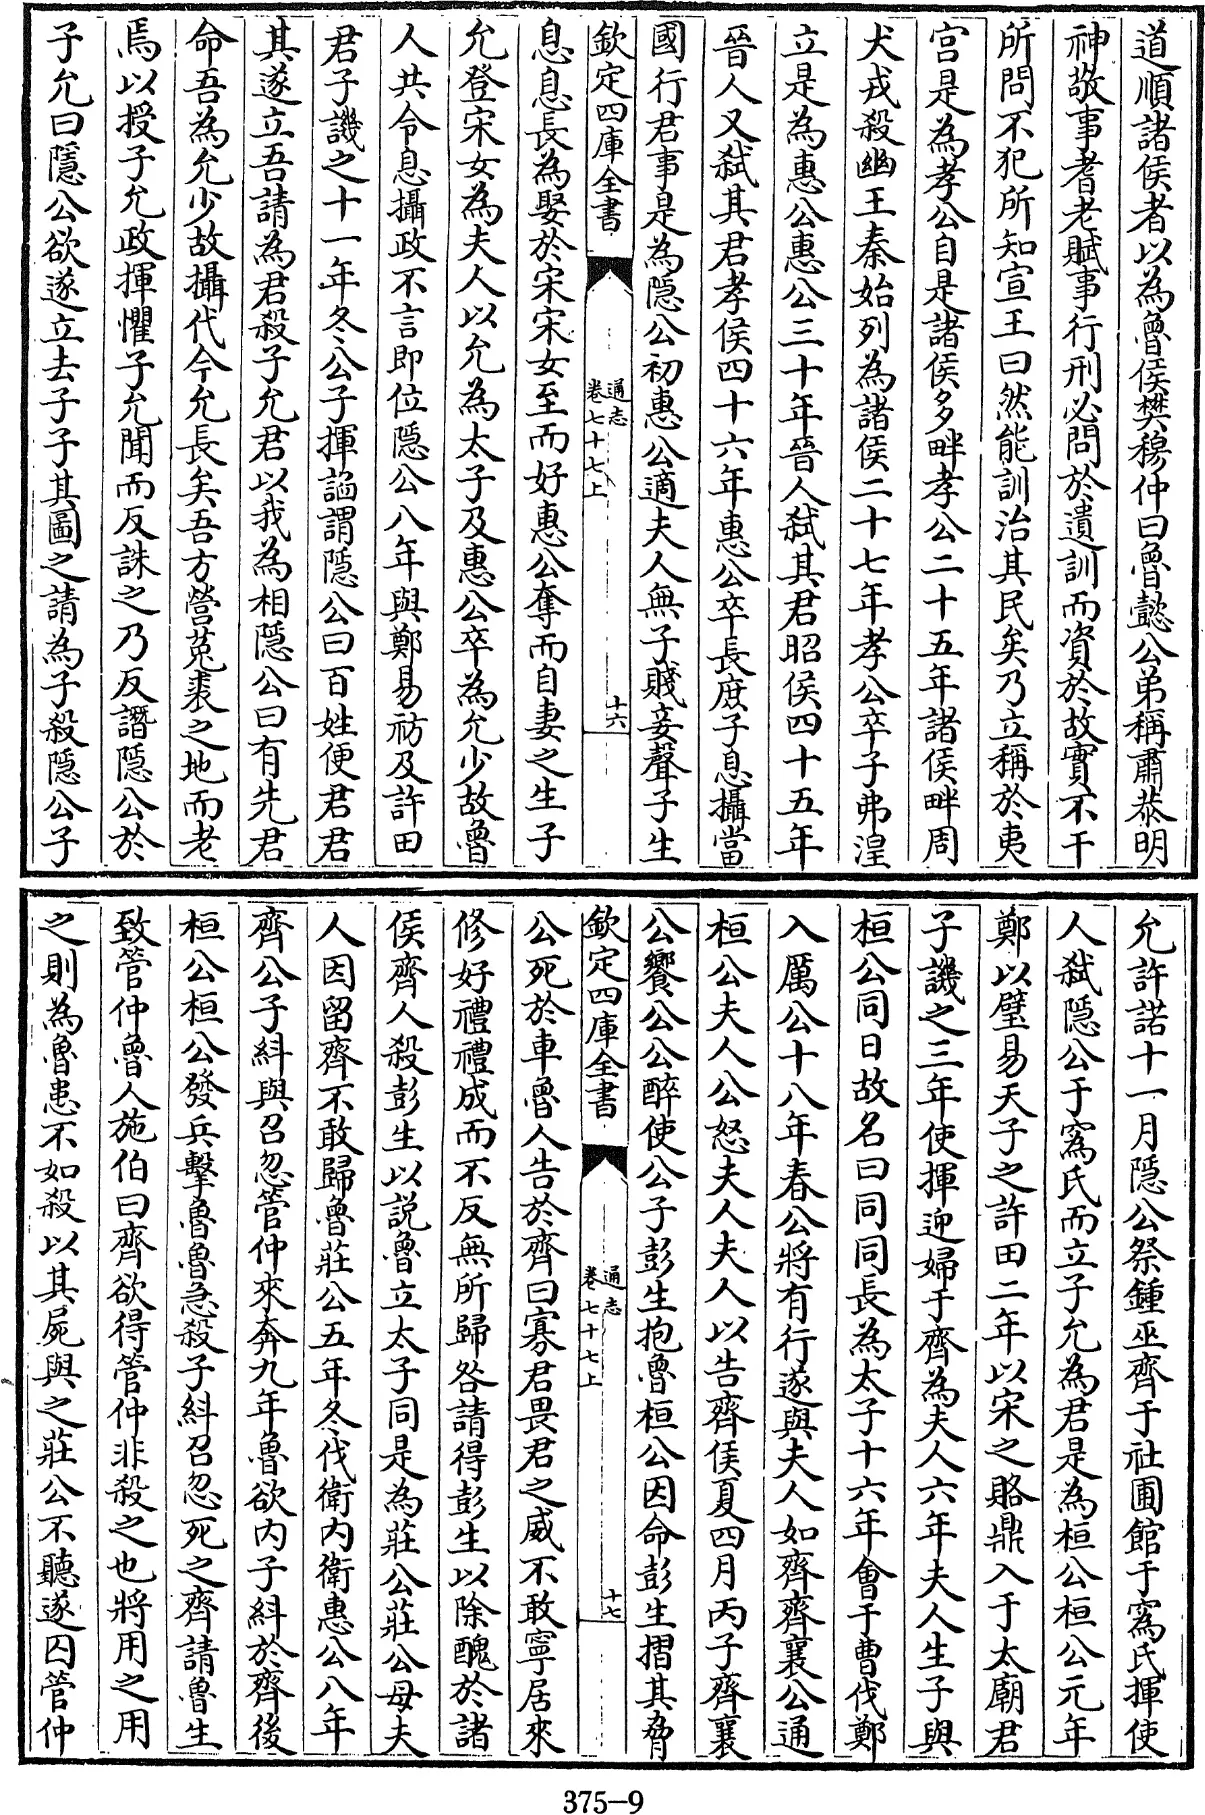 道順諸侯者以為魯侯樊穆仲曰魯懿公弟稱肅恭明
神敬事耉老賦事行刑必問於遺訓而資於故實不干
所問不犯所知宣王曰然能訓治其民矣乃立稱於夷
宫是為孝公自是諸侯多畔孝公二十五年諸侯畔周
犬戎殺幽王秦始列為諸侯二十七年孝公卒子弗湟
立是為惠公惠公三十年晉人弑其君昭侯四十五年
晉人又弑其君孝侯四十六年惠公卒長庶子息攝當
國行君事是為隱公初惠公適夫人無子賤妾聲子生
欽定四庫全書
通志
卷七十七上
十六
息息長為娶於宋宋女至而好惠公奪而自妻之生子
允登宋女為夫人以允為太子及惠公卒為允少故魯
人共令息攝政不言即位隱公八年與鄭易祊及許田
君子譏之十一年冬公子揮謟謂隱公曰百姓便君君
其遂立吾請為君殺子允君以我為相隱公曰有先君
命吾為允少故攝代今允長矣吾方營菟裘之地而老
焉以授子允政揮懼子允聞而反誅之乃反譖隱公於
子允曰隱公欲遂立去子子其圖之請為子殺隱公子
允許諾十一月隱公祭鍾巫齊于社圃館于寪氏揮使
人弑隱公于寪氏而立子允為君是為桓公桓公元年
鄭以璧易天子之許田二年以宋之賂鼎入于太廟君
子譏之三年使揮迎婦于齊為夫人六年夫人生子與
桓公同日故名曰同同長為太子十六年會于曹伐鄭
入厲公十八年春公將有行遂與夫人如齊齊襄公通
桓公夫人公怒夫人夫人以告齊侯夏四月丙子齊襄
公饗公公醉使公子彭生抱魯桓公因命彭生摺其脅
欽定四庫全書
通志
卷七十七上
十七
公死於車魯人告於齊曰寡君畏君之威不敢寧居來
修好禮禮成而不反無所歸咎請得彭生以除醜於諸
侯齊人殺彭生以説魯立太子同是為莊公莊公母夫
人因留齊不敢歸魯莊公五年冬伐衛内衛惠公八年
齊公子糾與召忽管仲來奔九年魯欲内子糾於齊後
桓公桓公發兵擊魯魯急殺子糾召忽死之齊請魯生
致管仲魯人施伯曰齊欲得管仲非殺之也將用之用
之則為魯患不如殺以其屍與之莊公不聽遂囚管仲
375-9